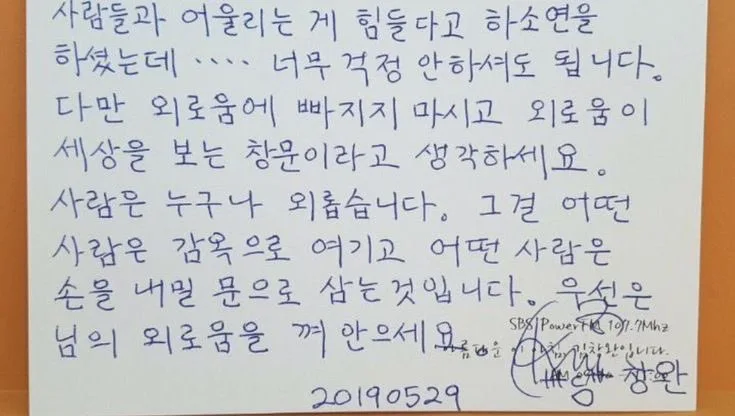 사람들과 어울리는 게 힘들다고 하소연을
하셨는데 ···· 너무 걱정 안하셔도 됩니다.
다만 외로움에 빠지지 마시고 외로움이
세상을 보는 창문이라고 생각하세요.
사람은 누구나 외롭습니다. 그걸 어떤
사람은 감옥으로 여기고 어떤 사람은
손을 내밀 문으로 삼는것입니다. 우선은
님의 외로움을 껴 안으세요
SBS Power FM 107.7Mhz
아름다운 이 아침, 김창완입니다.
창완
20190529